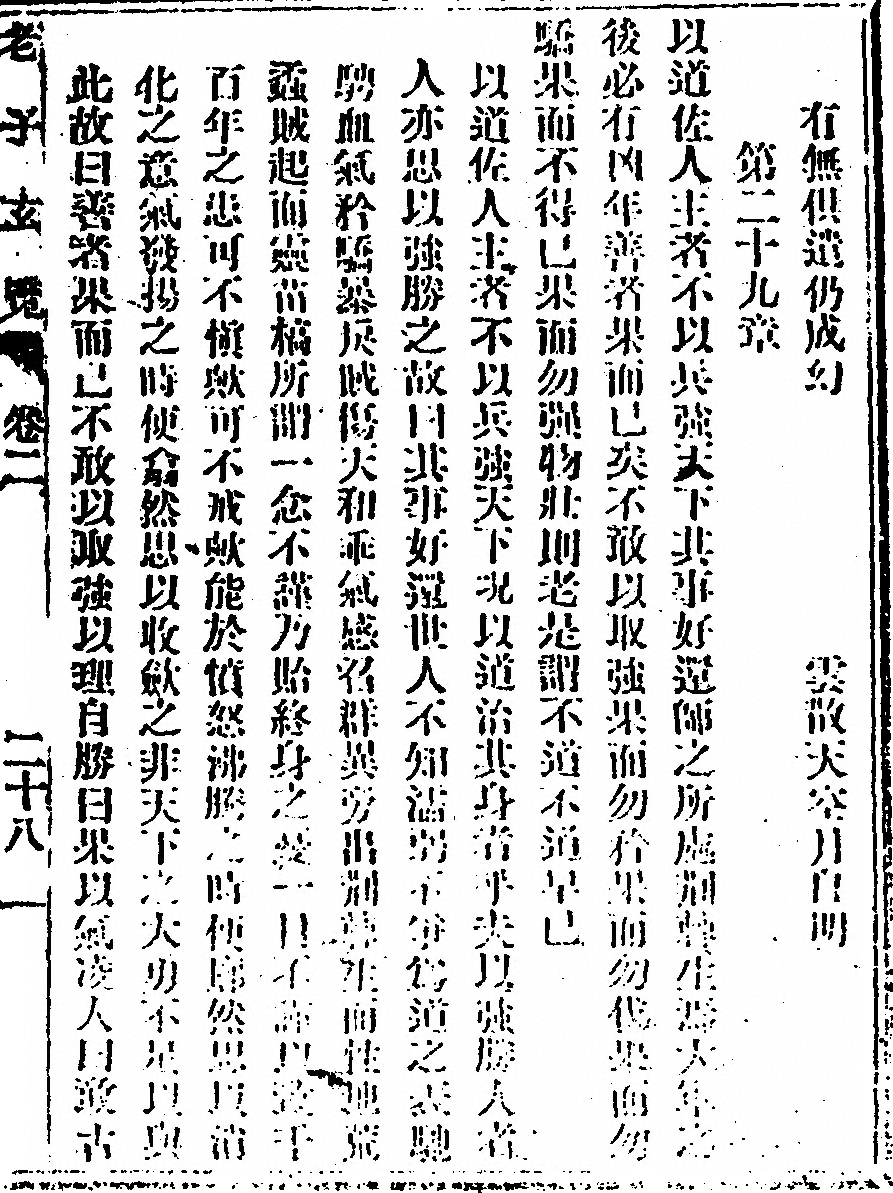 有無俱遣仍成幻　雲散天空月自明
第二十九章
以道佐人主者不以兵強天下其事好還師之所處荆棘生焉大年之
後必有凶年善者果而已矣不敢以取強果而勿矜果而勿伐果而勿
驕果而不得已果而勿强物壯則老是謂不道不道早已
以道佐人主者不以兵強天下況以道治其身者乎夫以強勝人者
人亦思以強勝之故曰其事好還世人不知 弱不爭爲道之 馳
騁血氣矜驕暴戾賊傷天和乖氣感召群異旁出荆棘生而性地荒
蟊賊起而靈苗槁所謂一念不謹乃貽終身之 一 不謹以 千
百年之患可不慎歟可不戒歟能於憤怒沸騰之時便 然思以消
化之意氣發揚之時便翕然思以收斂之非天下之大勇不足以與
此故曰善者果而已不敢以取強以理自勝曰果以氣凌人曰敢古
老子玄覽　卷二　二十八